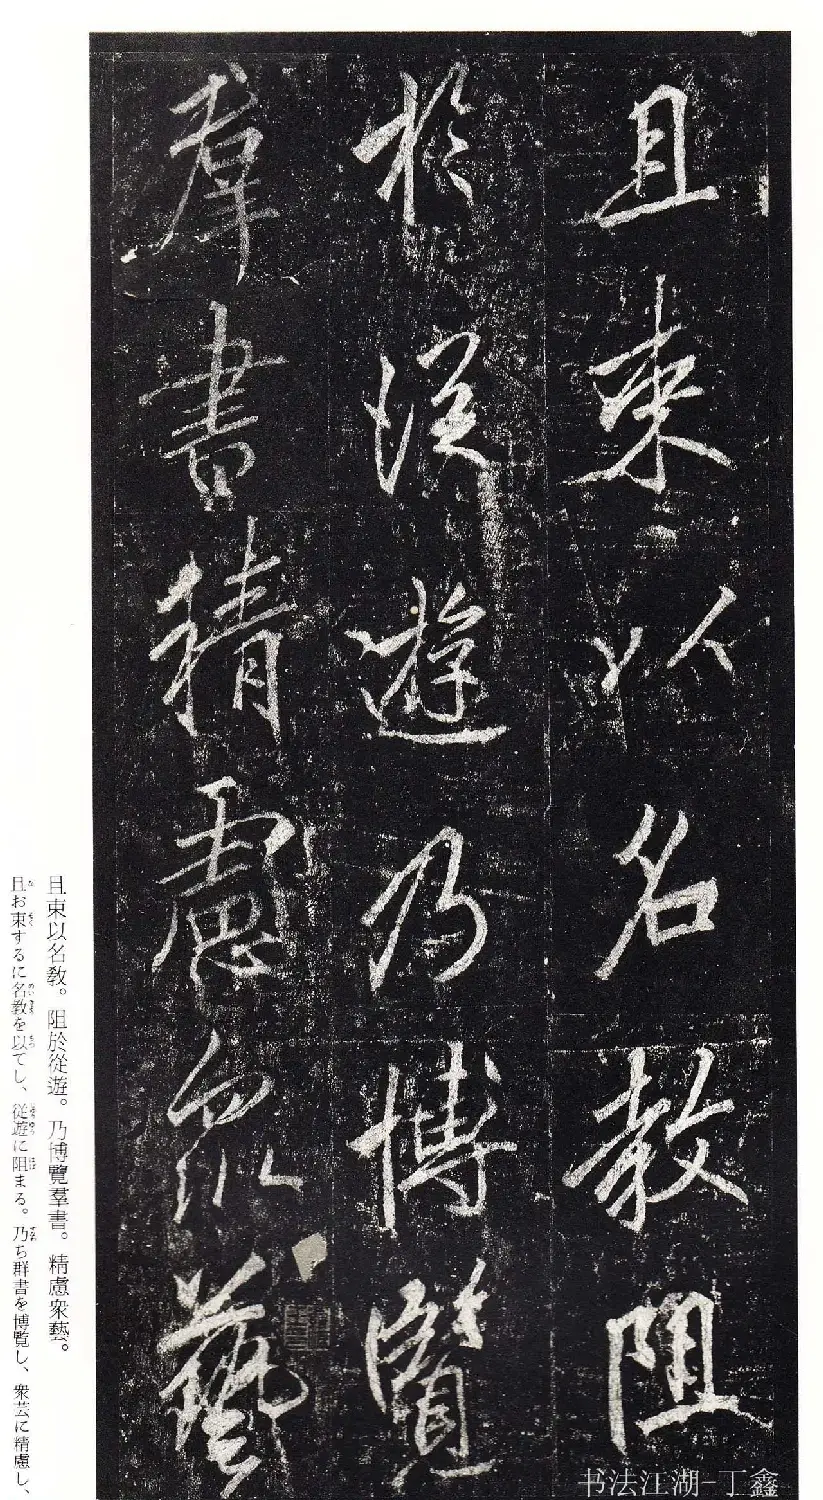 且束以名教阻
於從遊乃博覽
羣書精慮衆藝
且束以名敎。阻於從遊。乃博覽羣書。精慮衆藝。
且お束するに名教を以てし、從遊に阻まる。乃ち群書を博覧し、衆芸に精慮し、
书法江湖-丁鑫